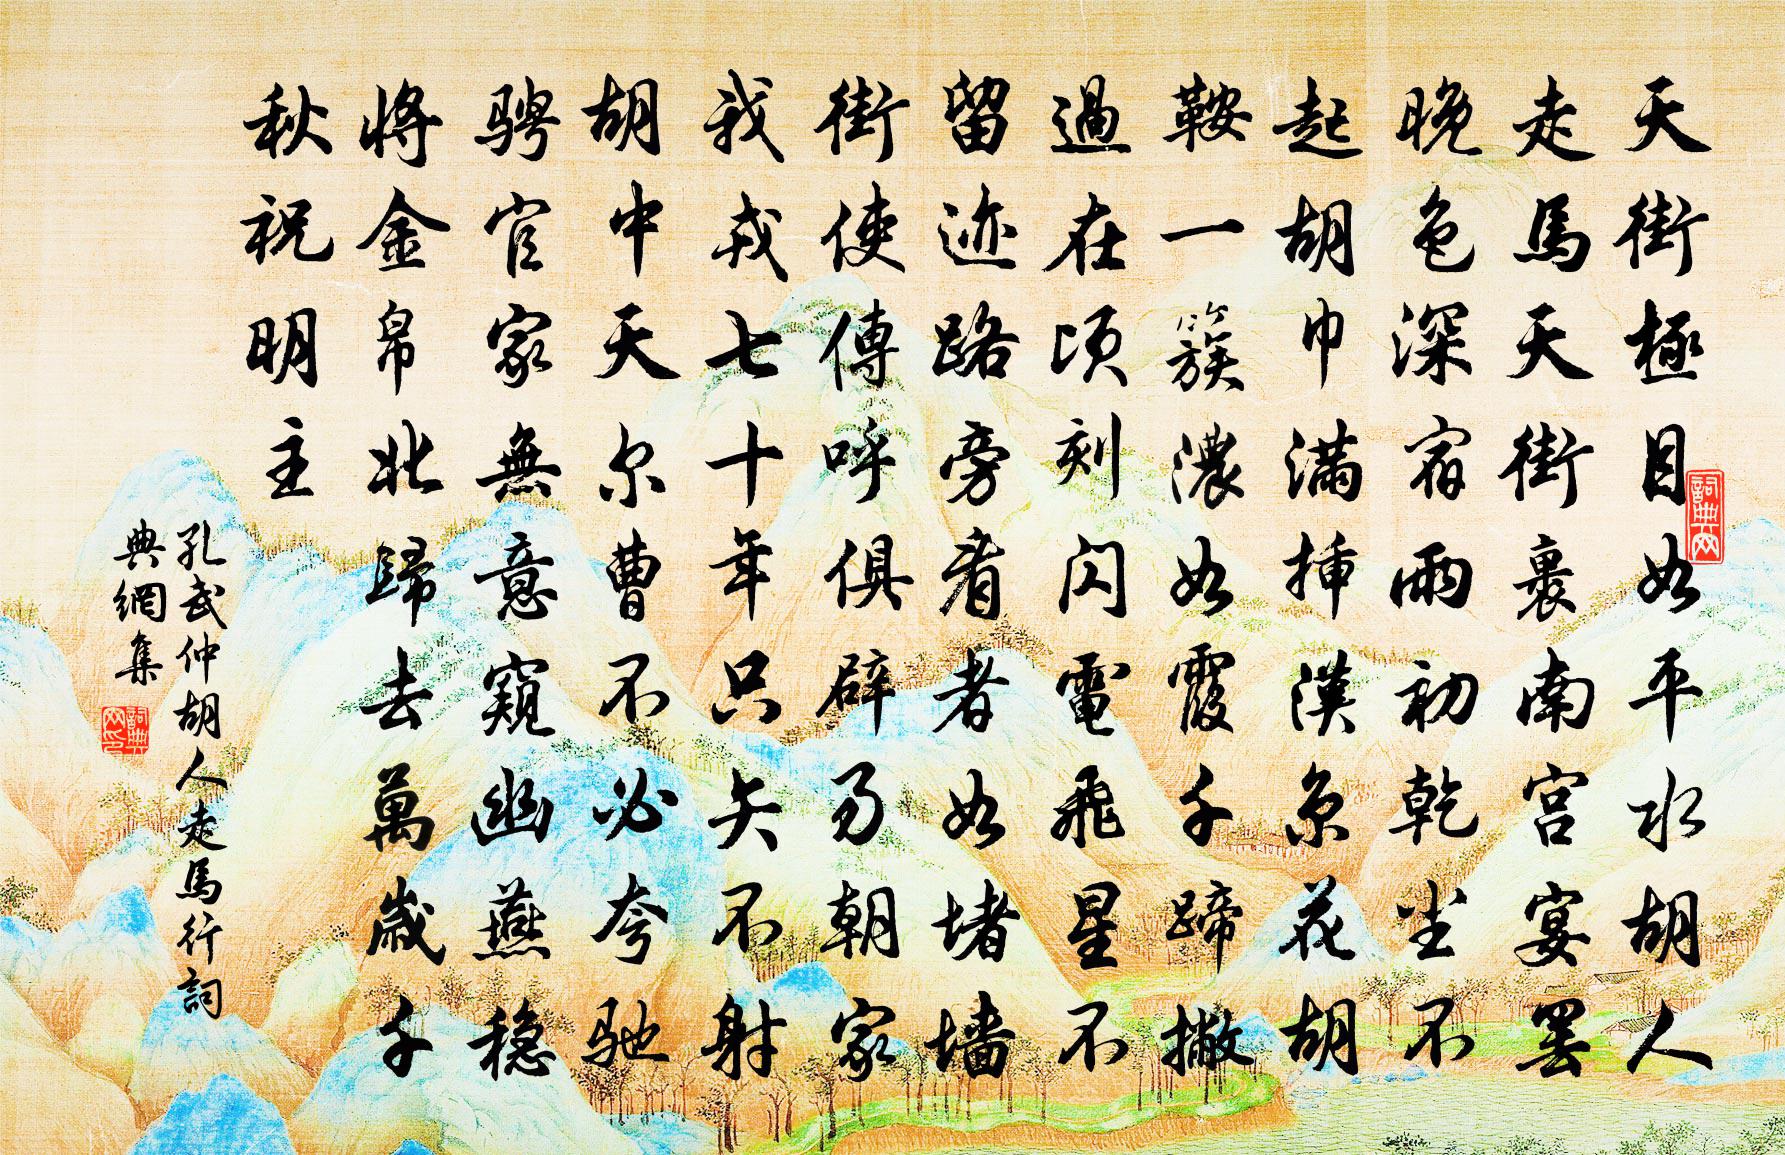 天街極目如平水胡人
走馬天街裏南宫宴罢
晚色深宿雨初乾尘不
起胡巾满插漢宫花胡
鞍一簇濃如霞千蹄撇
過在頃刻閃電飛星不
留迹路旁看者如堵墙
街使傳呼俱辟易朝家
我戎七十年只矢不射
胡中天尔曹不必夸驰
骋官家無意窺幽燕穏
将金帛北歸去萬歲千
秋祝明主
孔武仲胡人走馬行詞
典網集
詞典网
詞典网